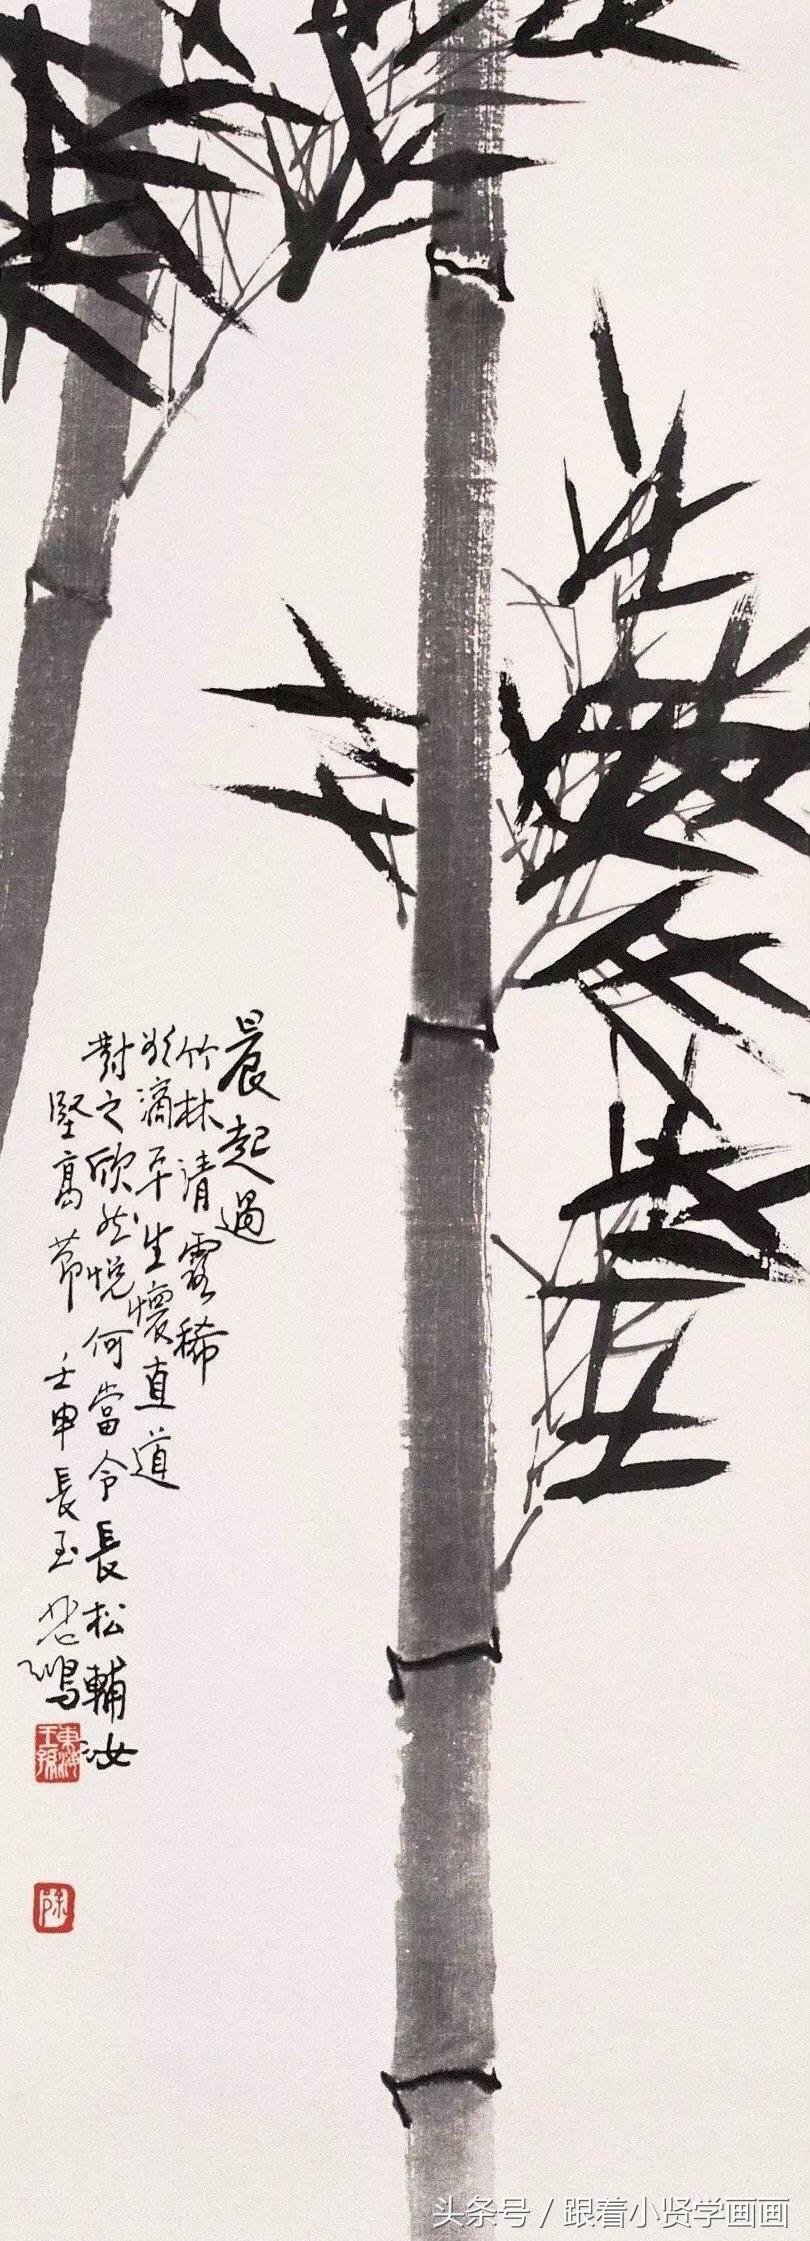 晨起過
竹林清露稀
欲滴平生懷直道
對之欣然悅何當令長松輔汝
堅高節 壬申長至悲鴻
東海王孫
徐
头条号 / 跟着小贤学画画